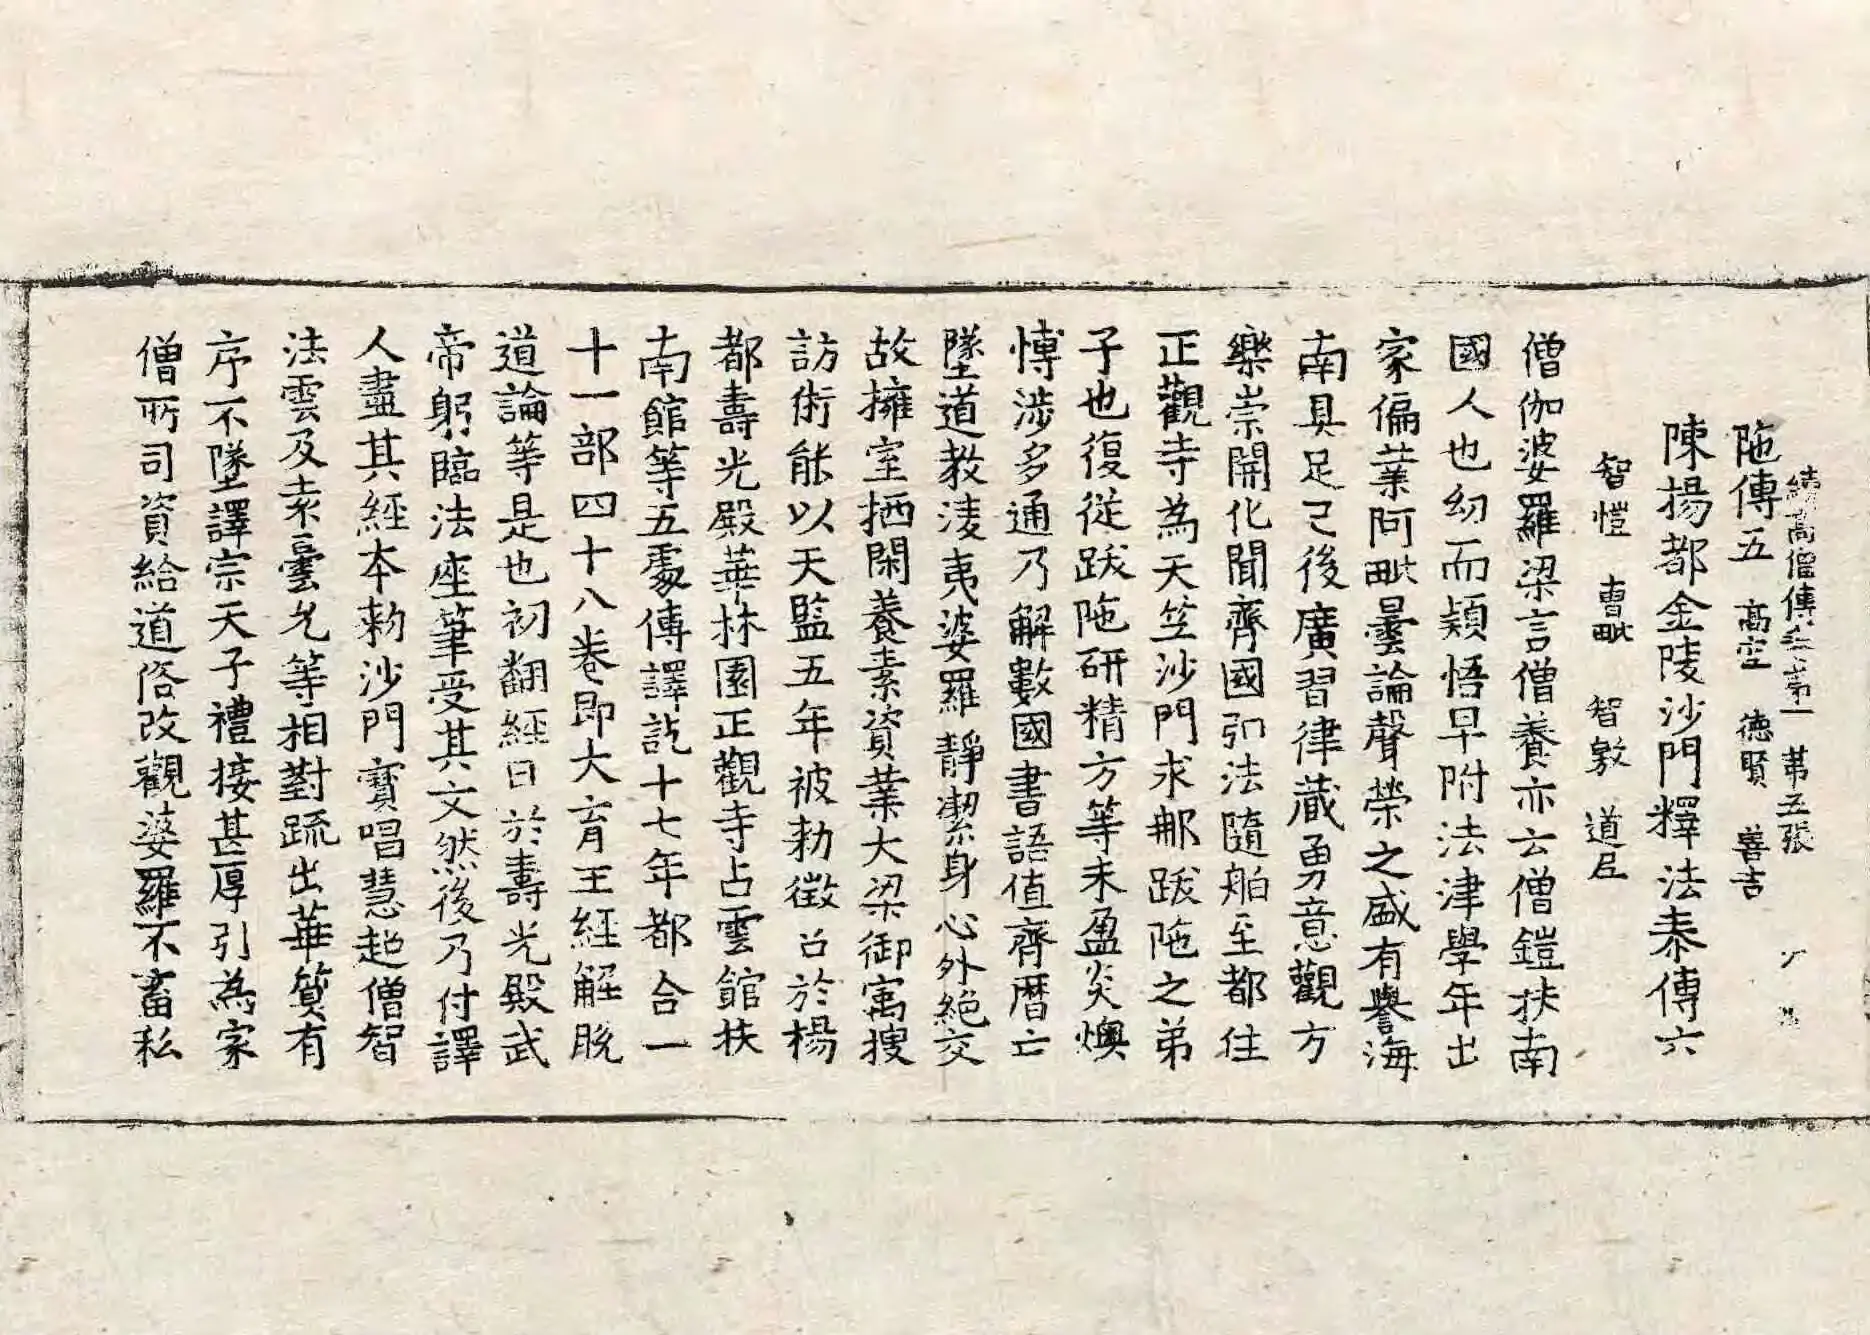 續高僧傳卷第一 第五張 
陁傳五 高空 德賢 善吉
陳揚都金陵沙門釋法泰傳六
智愷 曹毗 智敫 道尼
僧伽婆羅梁言僧養亦云僧鎧扶南
國人也幼而穎悟早附法津學年出
家偏業阿毗曇論聲榮之盛有譽海
南具足已後廣習律藏勇意觀方
樂崇開化聞齊國弘法隨舶至都住
正觀寺為天竺沙門求那跋陁之弟
子也復從跋陁研精方等未盈炎燠
博涉多通乃解數國書語值齊曆亡
墜道教淩夷婆羅靜潔身心外絕交
故擁室栖閑養素資業大梁御寓搜
訪術能以天監五年被勑徵召於楊
都壽光殿華林園正觀寺占雲館扶
南館等五處傳譯訖十七年都合一
十一部四十八卷即大育王經解脫
道論等是也初翻經日於壽光殿武
帝躬臨法座筆受其文然後乃付譯
人盡其經本勑沙門寶唱慧超僧智
法雲及袁曇允等相對疏出華質有
序不墜譯宗天子禮接甚厚引為家
僧所司資給道俗改觀婆羅不畜私